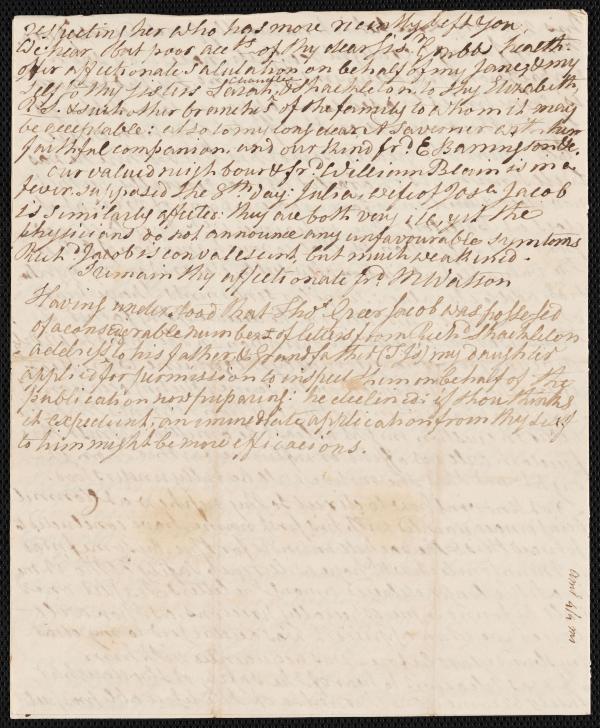 respecting her who has more recently left you,
We hear but poor acct.s of thy dear sis.r health.
Our affectionate salutation on behalf of my Jane, & my
self to thy sisters Sarah, Shackleton, to thy Elizabeth,
& such other branches of the family to whom it may
be acceptable: also to my
faithful companion, and our kind fr.d E Barrington &c.
our valued neighbour & fr.d William Blain is in a
fever, supposed the 8th day: Julia, wife of Jos.
Jacob
is similarly affected: they are both very ill, yet the
physicians do not announce any unfavourable symptoms
Rich.d Jacob is convalescent but much weakened.
I remain thy affectionate fr.d M Watson
Having understood that Tho.s Greer Jacob was possessed
of a considerable number of letters from Rich.d Shackleton
address.d to his father & Grandfather my daughter
applied for permission to inspect them on behalf of the
Publication now preparing: he declined: if thou thinks
it expedient, an immediate application from thy self
to him might be more efficacious.